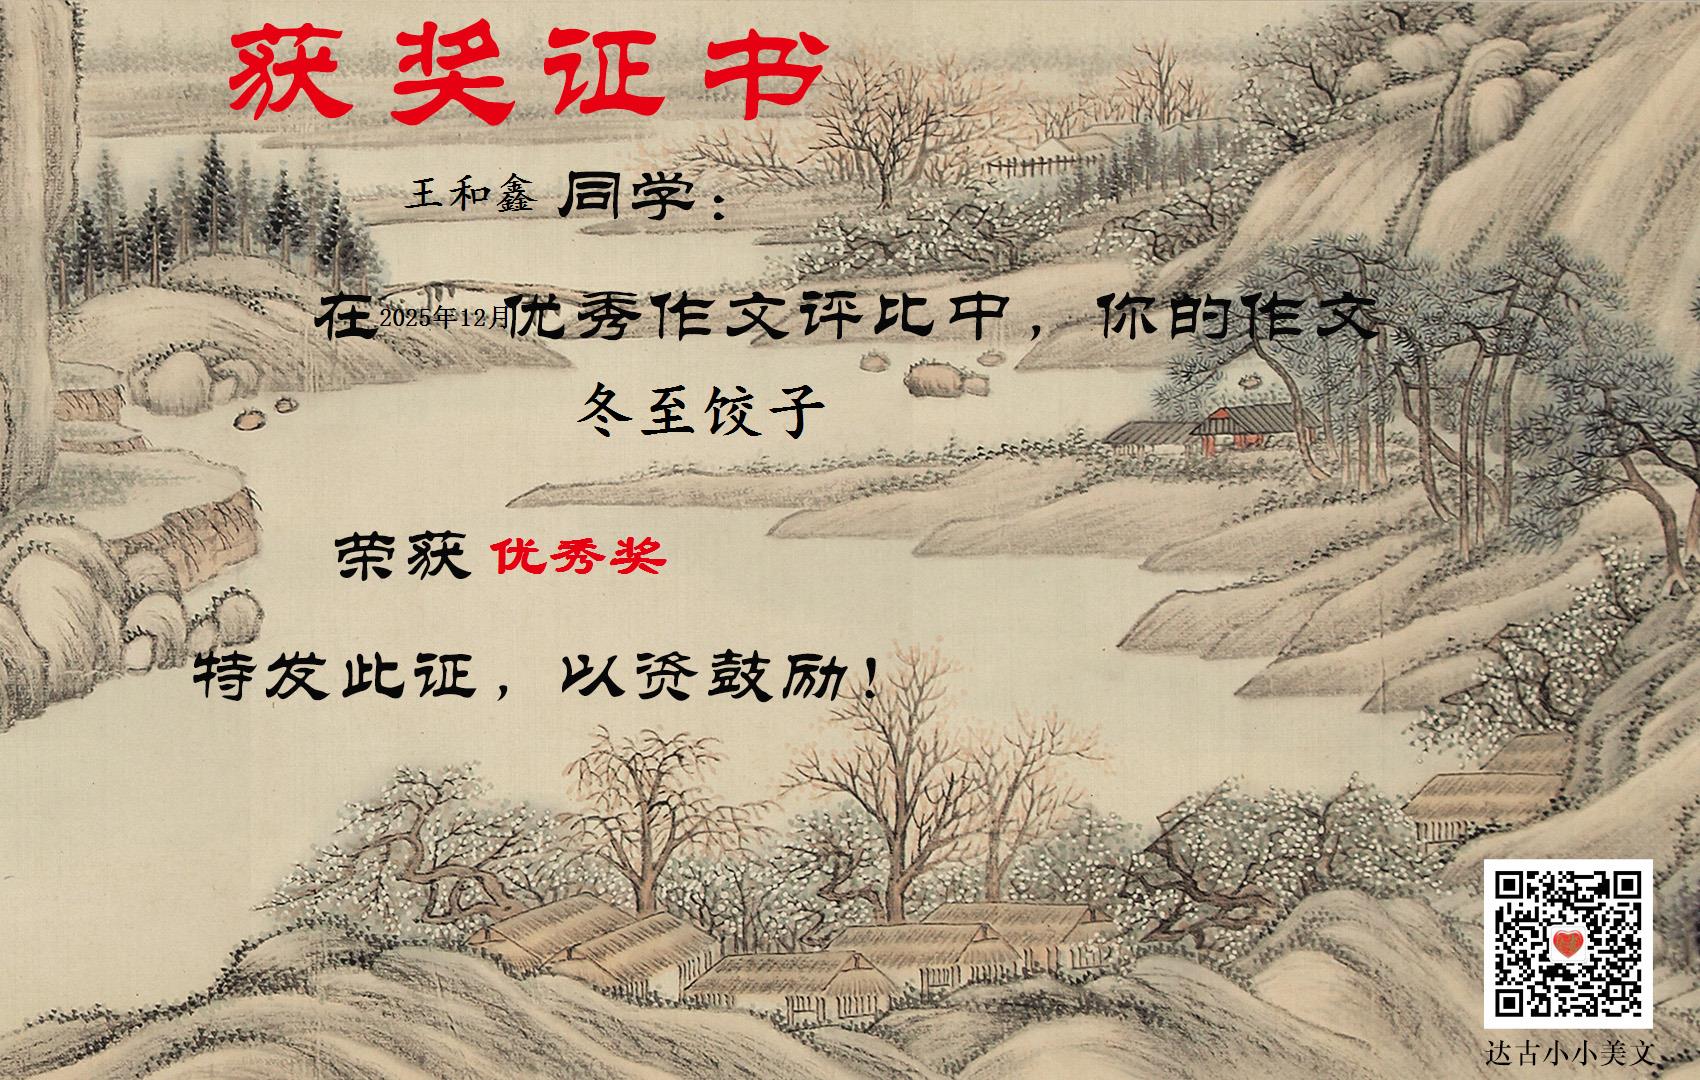 获奖证书
王和鑫 同学：
在2025年12月优秀作文评比中，你的作文
冬至饺子
荣获 优秀奖
特发此证，以资鼓励！
达古小小美文